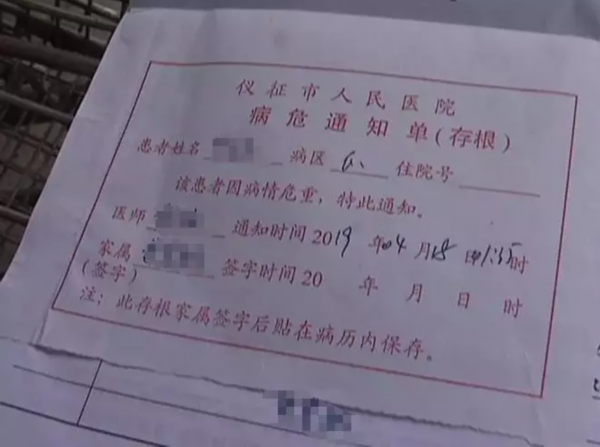 仪征市人民医院
病危通知单(存根)
患者姓名 病区 住院号
该患者因病情危重，特此通知。
医师 通知时间 2019 年 04 月 18 日 1:35 时
家属 签字时间 20 年 月 日 时
(签字)
注：此存根家属签字后贴在病历内保存。